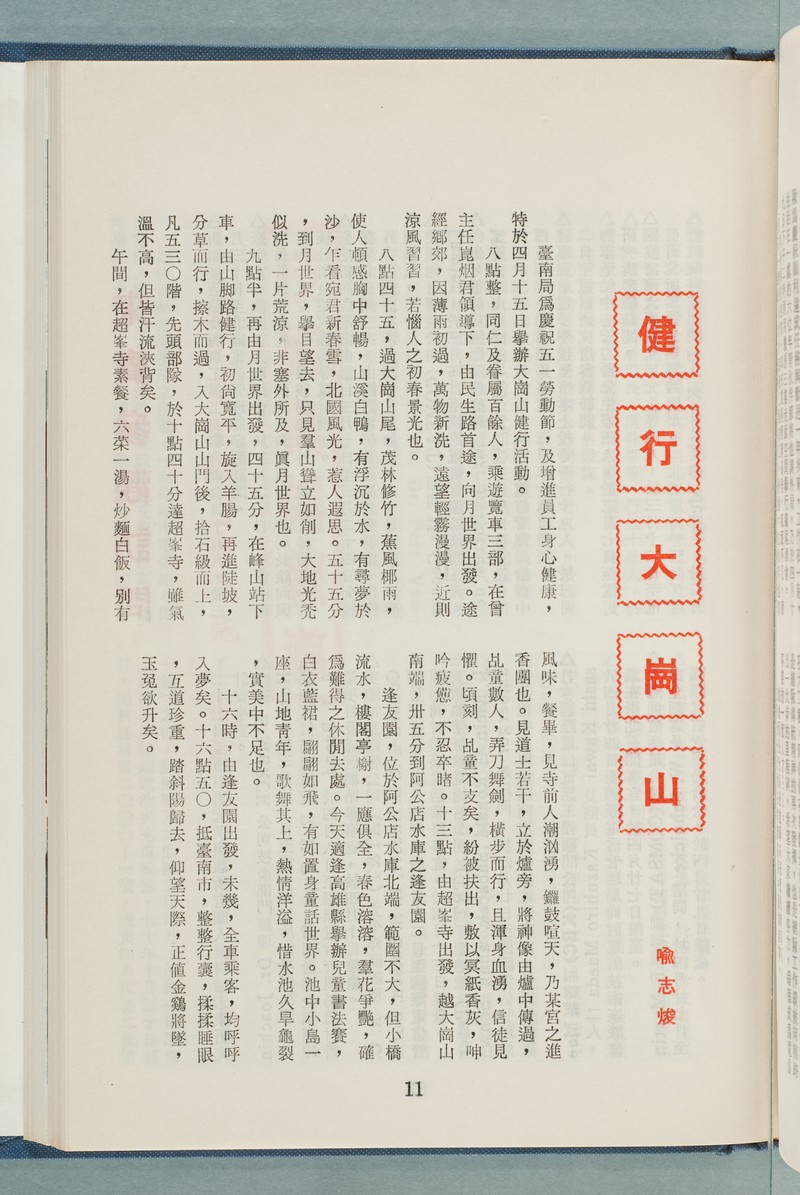 健行大崗山
喩志焌
臺南局爲慶祝五一勞動節，及增進員工身心健康，
特於四月十五日擧辦大崗山健行活動。
八點整，同仁及眷屬百餘人，乘遊覽車三部，在曾
主任崑烟君領導下，由民生路首途，向月世界出發。途
經鄉郊，因薄雨初過，萬物新洗，遠望輕霧漫漫，近則
涼風習習，若惱人之初春景光也。
八點四十五，過大崗山尾，茂林修竹，蕉風椰雨，
使人頓感胸中舒暢，山溪白鴨，有浮沉於水，有尋夢於
沙，乍看宛君新春雪，北國風光，惹人遐思。五十五分
，到月世界，擧目望去，只見羣山聳立如削，大地光禿
似洗，一片荒涼，非塞外所及，眞月世界也。
九點半，再由月世界出發，四十五分，在峰山站下
車，由山脚路健行，初尙寬平，旋入羊腸，再進陡坡，
分草而行，擦木而過，入大崗山山門後，拾石級而上，
凡五三〇階，先頭部隊，於十點四十分達超峯寺，雖氣
溫不高，但皆汗流浹背矣。
午間，在超峯寺素餐，六菜一湯，炒麵白飯，别有
風味，餐畢，見寺前人潮汹湧，鑼鼓喧天，乃某宮之進
香團也。見道士若干，立於爐旁，將神像由爐中傳過，
乩童數人，弄刀舞劍，橫步而行，且渾身血湧，信徒見
懼。頃刻，乩童不支矣，紛被扶出，敷以冥紙香灰，呻
吟疲憊，不忍卒睹。十三點，由超峯寺出發，越大崗山
南端，卅五分到阿公店水庫之逢友園。
逢友園，位於阿公店水庫北端，範圍不大，但小橋
流水，樓閣亭榭，一應俱全，春色溶溶，羣花爭艷，確
爲難得之休閒去處。今天適逢高雄縣擧辦兒童書法賽，
白衣藍裙，翩翩如飛，有如置身童話世界。池中小島一
座，山地靑年，歌舞其上，熱情洋溢，惜水池久旱龜裂
，實美中不足也。
十六時，由逢友園出發，未幾，全車乘客，均呼呼
入夢矣。十六點五〇，抵臺南市，整整行囊，揉揉睡眼
，互道珍重，踏斜陽歸去，仰望天際，正値金鷄將墜，
玉兔欲升矣。
11